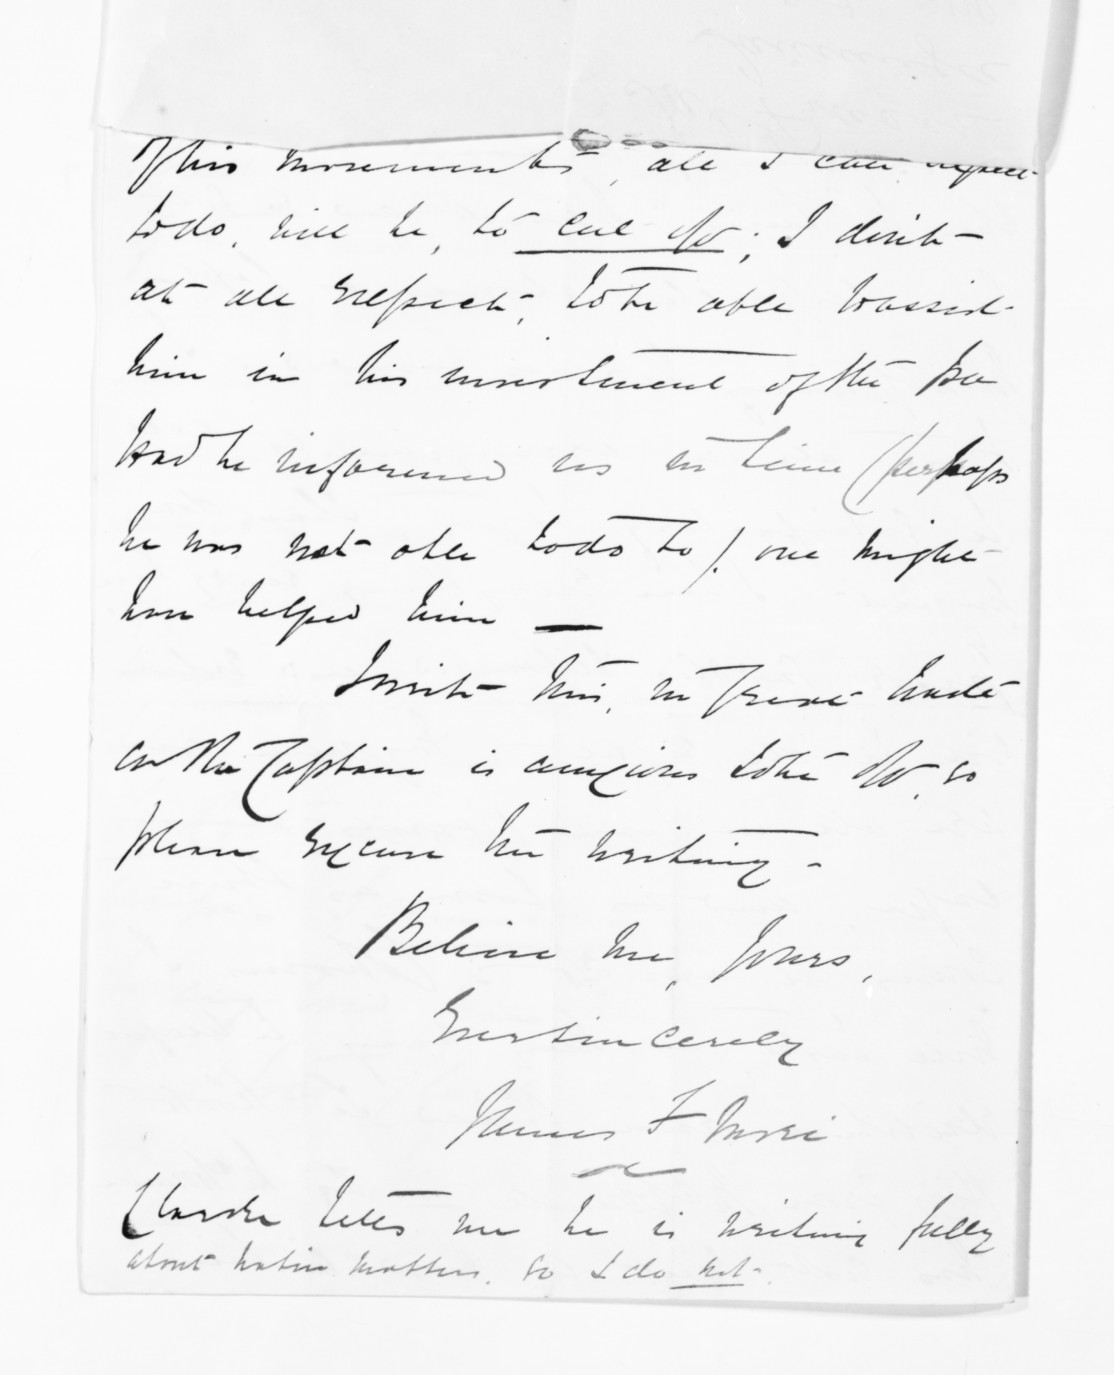 of his movements, all I can expect
to do, will be, to cut off; I don't
at all expect, to be able to assist
him in his investment of the Pa
Had he informed us in time (perhaps
he was not able to do so). one might
have helped him —
I write this, in great haste
as the Captain is anxious to be off, so
please excuse the writing -
Believe me, Yours,
Ever sincerely
James F
Clarke tells me he is writing fully
about native matters, so I do not.